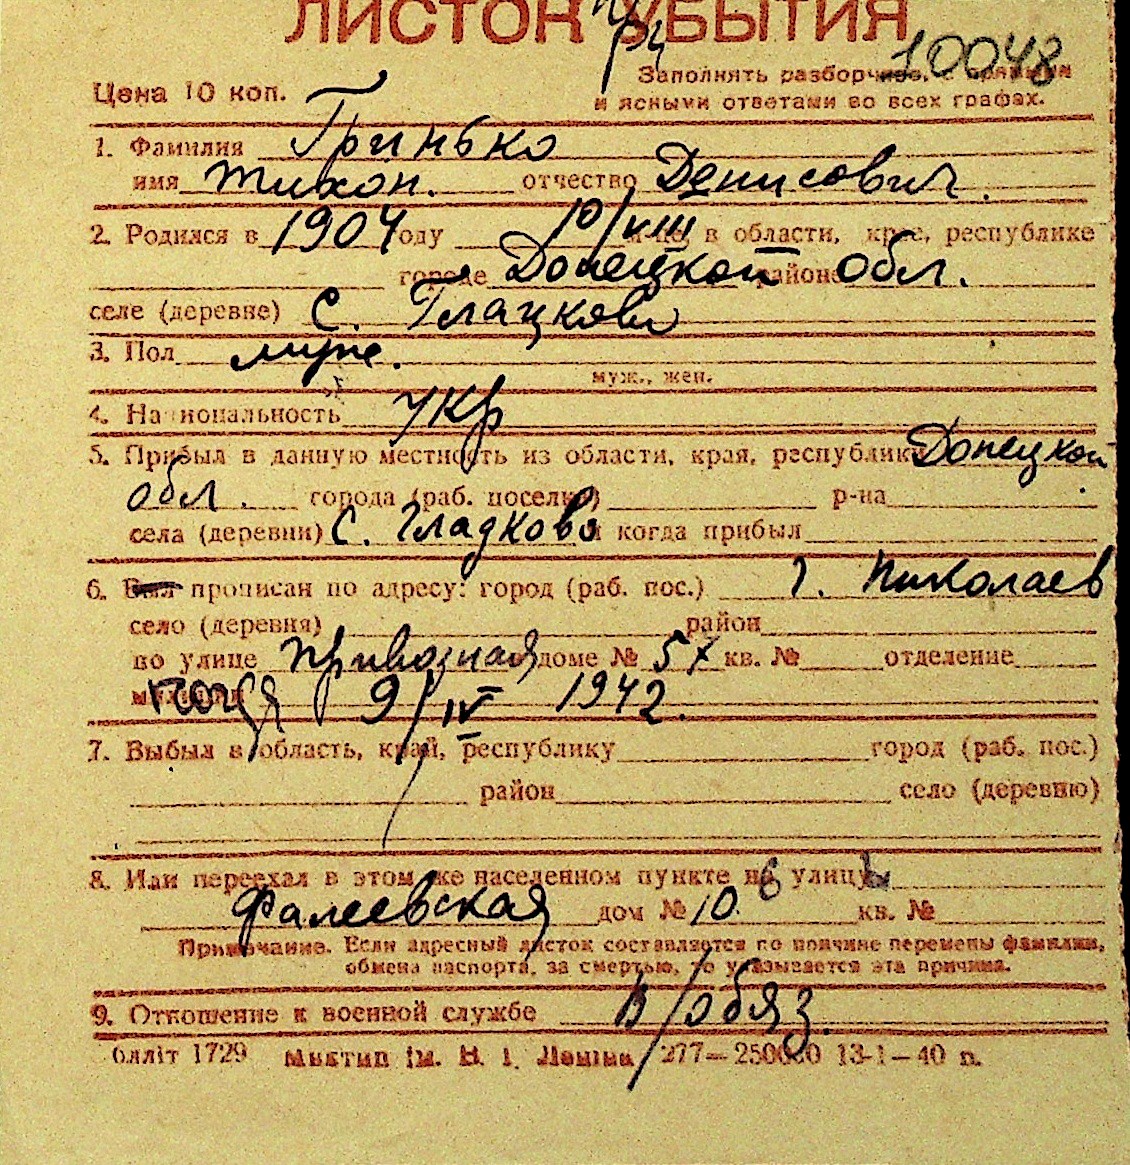 ЛИСТОК УБЫТИЯ
10048
Цена 10 коп.
Заполнять разборчиво, с прямыми
и ясными ответами во всех графах.
1. Фамилия Гринько
имя Тихон. отчество Денисович.
2. Родился в 1904 году 10/VIII м-це, в области, крае, республике
городе Донецкой районе обл.
селе (деревне) с. Гладково
3. Пол муж.
муж., жен.
4. Национальность укр
5. Прибыл в данную местность из области, края, республики Донецкой
обл. города (раб. поселка) р-на
села (деревни) с. Гладково и когда прибыл
6. Был прописан по адресу: город (раб. пос.) г. Николаев
село (деревня) район
по улице Привозная доме № 57 кв. № отделение
милиции 9/IV 1942.
7. Выбыл в область, край, республику город (раб. пос.)
район село (деревню)
8. Или переехал в этом же населенном пункте на улицу
Фалеевская дом № 10 б кв. №
Примечание. Если адресный листок составляется по причине перемены фамилии,
обмена паспорта, за смертью, то указывается эта причина.
9. Отношение к военной службе в/обяз.
Облліт 1729 277—250000 13-1—40 п.